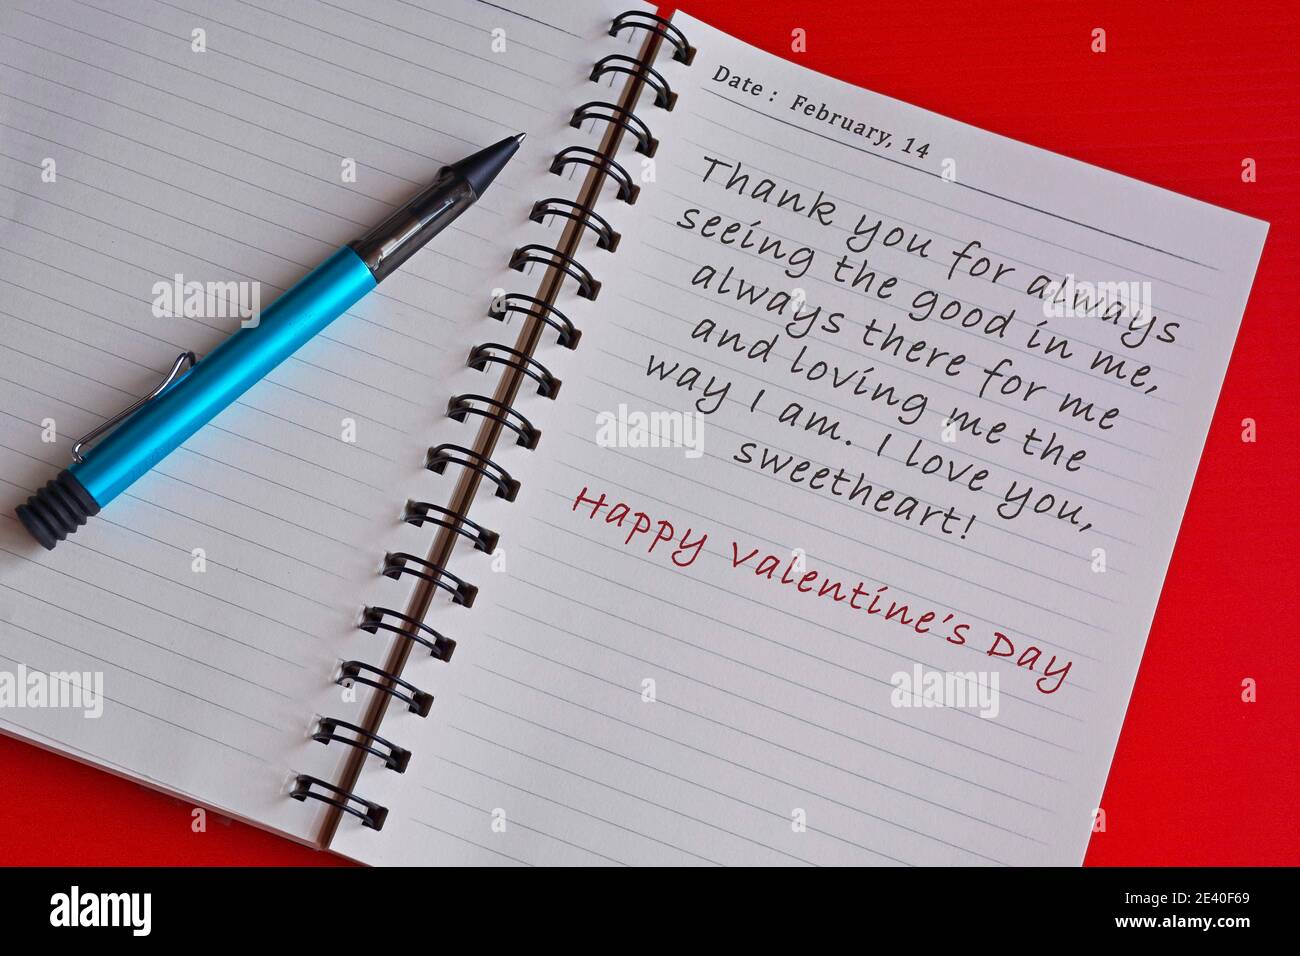 Date : February, 14
Thank you for always
seeing the good in me,
always there for me
and loving me the
way I am. I love you,
sweetheart!
Happy Valentine's Day
alamy
alamy
alamy
alamy
alamy
a a a a a a a a a a a a a a a a
alamy
Image ID: 2E40F69
www.alamy.com